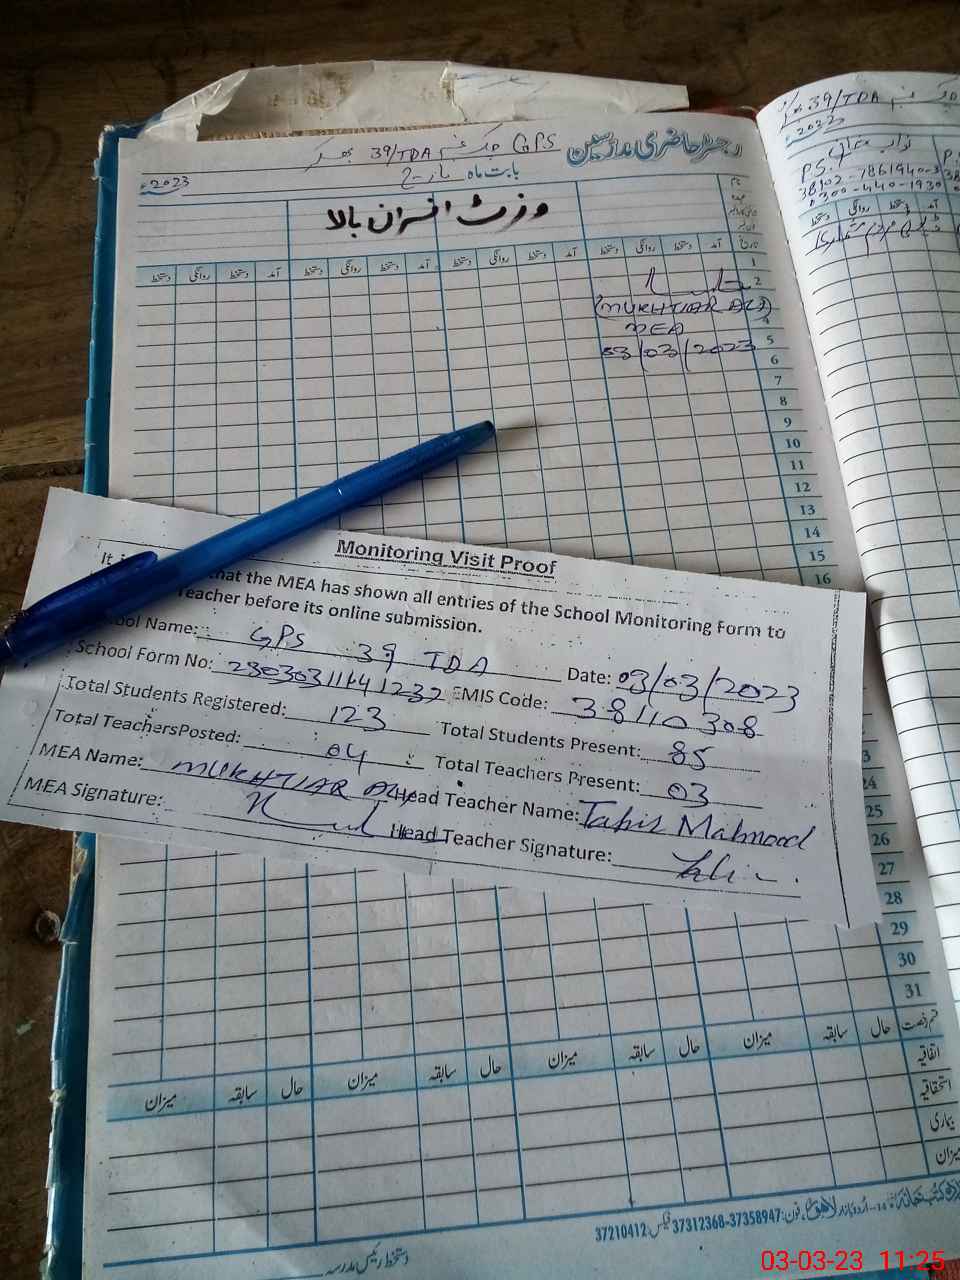 رجسٹر حاضری مدرسین GPS چک نمبر 39/TDA بھکر
بابت ماہ مارچ 2023ء
وزٹ افسران بالا
نام
تاریخ آمد دستخط روانگی دستخط آمد دستخط روانگی دستخط آمد دستخط روانگی دستخط
1
2
(MUKHTIAR ALI)
4
MEA
5
03/03/2023
6
7
8
9
10
11
12
13
14
15
16
Monitoring Visit Proof
It that the MEA has shown all entries of the School Monitoring Form to
Teacher before its online submission.
School Name: GPS 39 TDA Date: 03/03/2023
School Form No: EMIS Code: 38110308
Total Students Registered: 123 Total Students Present: 85
Total Teachers Posted: 04 Total Teachers Present: 03
MEA Name: MUKHTIAR ALI Head Teacher Name: Tahir Mahmood
MEA Signature: Head Teacher Signature:
24
25
26
27
28
29
30
31
قسم رخصت حال سابقہ میزان حال سابقہ میزان حال سابقہ میزان حال سابقہ میزان
اتفاقیہ
استحقاقیہ
بیماری
میزان
14-اردو بازار لاہور۔ فون: 37358947-37312368 فیکس: 37210412
دستخط رئیس مدرسہ
39/TDA
2022ء
P.S.T
38102-7861940-3
0300-440-1930
آمد دستخط روانگی دستخط
03-03-23 11:25